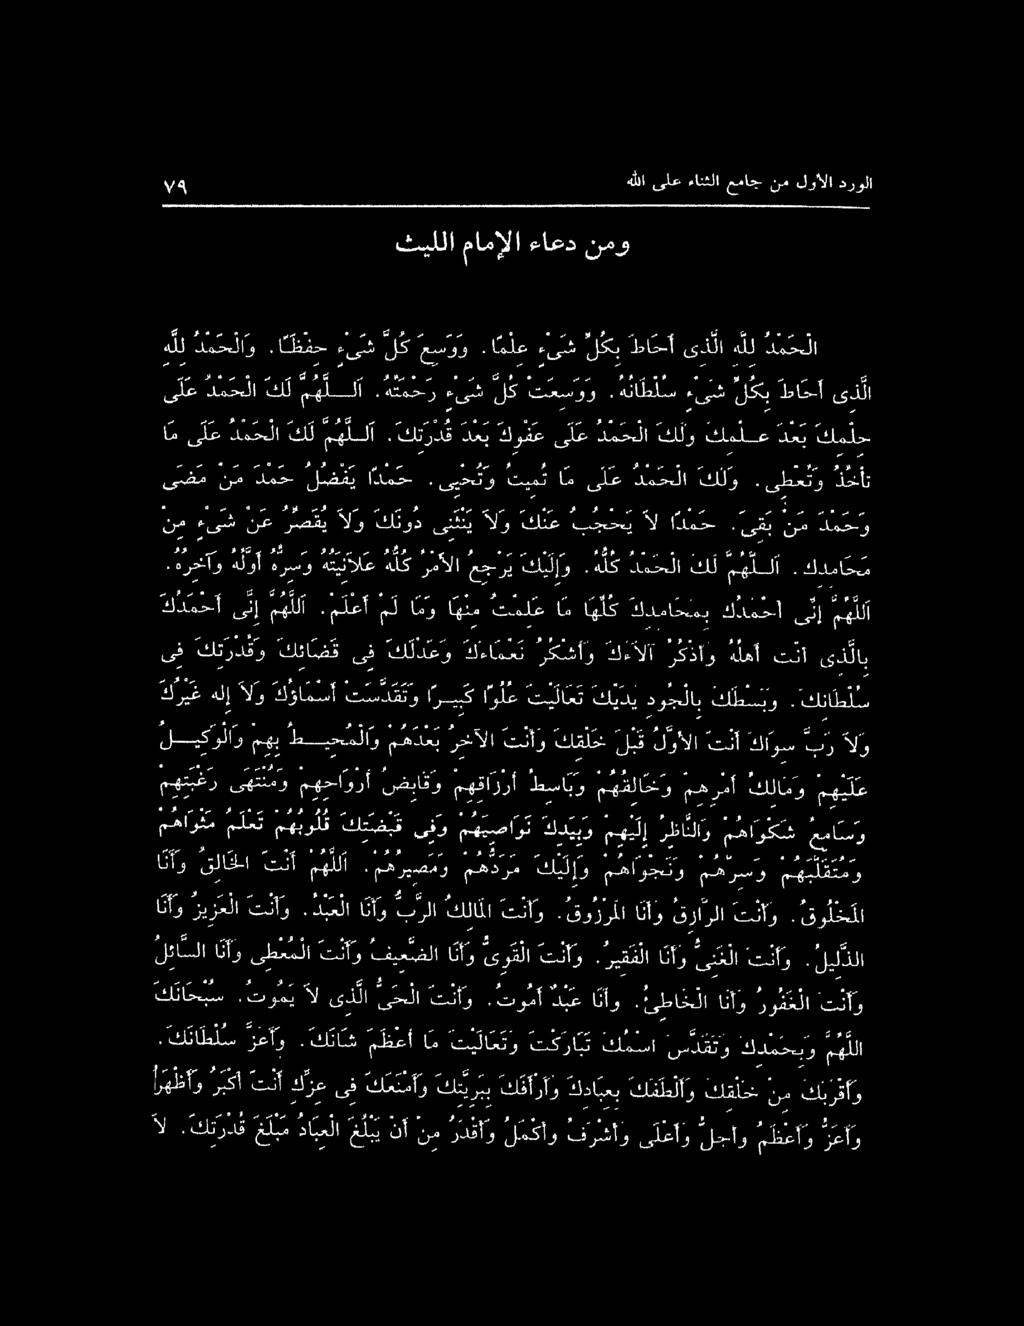 الورد الأول من جامع الثناء على الله ٧٩
ومن دعاء الإمام الليث
اَلْحَمْدُ لِلَّهِ الَّذِى أَحَاطَ بِكُلِّ شَىْءٍ عِلْمًا. وَوَسِعَ كُلَّ شَىْءٍ حِفْظًا. وَالْحَمْدُ لِلَّهِ
الَّذِى أَحَاطَ بِكُلِّ شَىْءٍ سُلْطَانُهُ. وَوَسِعَتْ كُلَّ شَىْءٍ رَحْمَتُهُ. اَللَّهُمَّ لَكَ الْحَمْدُ عَلَى
حِلْمِكَ بَعْدَ عِلْمِكَ وَلَكَ الْحَمْدُ عَلَى عَفْوِكَ بَعْدَ قُدْرَتِكَ. اَللَّهُمَّ لَكَ الْحَمْدُ عَلَى مَا
تَأْخُذُ وَتُعْطِى. وَلَكَ الْحَمْدُ عَلَى مَا تُمِيتُ وَتُحْيِى. حَمْدًا يَفْضُلُ حَمْدَ مَنْ مَضَى
وَحَمْدَ مَنْ بَقِىَ. حَمْدًا لاَ يَحْجُبُ عَنْكَ وَلاَ يَنْثَنِى دُونَكَ وَلاَ يُقَصِّرُ عَنْ شَىْءٍ مِنْ
مَحَامِدِكَ. اَللَّهُمَّ لَكَ الْحَمْدُ كُلُّهُ. وَإِلَيْكَ يَرْجِعُ الأَمْرُ كُلُّهُ عَلاَنِيَتُهُ وَسِرُّهُ أَوَّلُهُ وَآخِرُهُ.
اَللَّهُمَّ إِنِّى أَحْمَدُكَ بِمَحَامِدِكَ كُلِّهَا مَا عَلِمْتُ مِنْهَا وَمَا لَمْ أَعْلَمْ. اَللَّهُمَّ إِنِّى أَحْمَدُكَ
بِالَّذِى أَنْتَ أَهْلُهُ وَأَذْكُرُ آلاَءَكَ وَأَشْكُرُ نَعْمَاءَكَ وَعَدْلَكَ فِى قَضَائِكَ وَقُدْرَتِكَ فِى
سُلْطَانِكَ. وَبَسْطَكَ بِالْجُودِ يَدَيْكَ تَعَالَيْتَ عُلُوًّا كَبِيرًا وَتَقَدَّسَتْ أَسْمَاؤُكَ وَلاَ إِلهَ غَيْرُكَ
وَلاَ رَبَّ سِوَاكَ أَنْتَ الأَوَّلُ قَبْلَ خَلْقِكَ وَأَنْتَ الآخِرُ بَعْدَهُمْ وَالْمُحِيطُ بِهِمْ وَالْوَكِيلُ
عَلَيْهِمْ وَمَالِكُ أَمْرِهِمْ وَخَالِقُهُمْ وَبَاسِطُ أَرْزَاقِهِمْ وَقَابِضُ أَرْوَاحِهِمْ وَمُنْتَهَى رَغْبَتِهِمْ
وَسَامِعُ شَكْوَاهُمْ وَالنَّاظِرُ إِلَيْهِمْ وَبِيَدِكَ نَوَاصِيهُمْ وَفِى قَبْضَتِكَ قُلُوبُهُمْ تَعْلَمُ مَثْوَاهُمْ
وَمُتَقَلَّبَهُمْ وَسِرَّهُمْ وَنَجْوَاهُمْ وَإِلَيْكَ مَرَدُّهُمْ وَمَصِيرُهُمْ. اَللَّهُمْ أَنْتَ الْخَالِقُ وَأَنَا
الْمَخْلُوقُ. وَأَنْتَ الرَّازِقُ وَأَنَا الْمَرْزُوقُ. وَأَنْتَ الْمَالِكُ الرَّبُّ وَأَنَا الْعَبْدُ. وَأَنْتَ الْعَزِيزُ وَأَنَا
الذَّلِيلُ. وَأَنْتَ الْغَنِىُّ وَأَنَا الْفَقِيرُ. وَأَنْتَ الْقَوِىُّ وَأَنَا الضَّعِيفُ وَأَنْتَ الْمُعْطِى وَأَنَا السَّائِلُ
وَأَنْتَ الْغَفُورُ وَأَنَا الْخَاطِئُ. وَأَنَا عَبْدٌ أَمُوتُ. وَأَنْتَ الْحَىُّ الَّذِى لاَ يَمُوتُ. سُبْحَانَكَ
اللَّهُمَّ وَبِحَمْدِكَ وَتَقَدَّسَ اسْمُكَ تَبَارَكْتَ وَتَعَالَيْتَ مَا أَعْظَمَ شَانَكَ. وَأَعَزَّ سُلْطَانَكَ.
وَأَقْرَبَكَ مِنْ خَلْقِكَ وَأَلْطَفَكَ بِعِبَادِكَ وَأَرْأَفَكَ بِبَرِيَّتِكَ وَأَمْنَعَكَ فِى عِزِّكَ أَنْتَ أَكْبَرُ وَأَظْهَرُ
وَأَعَزُّ وَأَعْظَمُ وَأَجَلُّ وَأَعْلَى وَأَشْرَفُ وَأَكْمَلُ وَأَقْدَرُ مِنْ أَنْ يَبْلُغَ الْعِبَادُ مَبْلَغَ قُدْرَتِكَ. لاَ